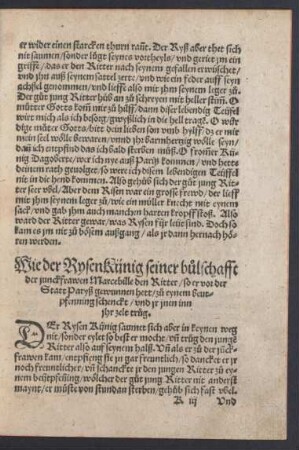 er wider einen starcken thurn rant. Der Ryß aber thet sich
nit saumen/sonder lůgt seynes vortheyls/vnd geriet jm ein
griffe/das er den Ritter nach seynem gefallen erwüschet/
vnd jhn auß seynem sattel zert/vnd wie ein feder auff seyn
achßel genommen/vnd lieffe also mit jhm seynem leger zů.
Der gůt jung Ritter hůb an zů schreyen mit heller stim̃. O
můter Gotts kom̃ mir zů hilff/dann diser lebendig Teüffel
wirt mich als ich besorg/gwyßlich in die hell trage͂. O wir⸗
dige můter Gotts/bitt dein lieben son vmb hylff/dz er mir
mein seel wölle bewaren/vnnd jhr barmhertzig wölle seyn/
dañ ich entpfind das ich bald sterben můß. O from̃er Kü⸗
nig Dagoberte/wer ich nye auß Paryß kommen/vnd hette
deinem rath gevolget/so were ich disem lebendigen Teüffel
nit in die hend kommen. Also gehůb sich der gůt jung Rit⸗
ter seer vbel/Aber dem Risen war ein grosse frewd/der lieff
mit jhm seynem leger zů/wie ein müller knecht mit eynem
sack/vnd gab jhm auch manchen harten kropffstoß. Also
ward der Ritter gewar/was Rysen für leüt sind. Doch so
kam es jm nit zů bösem außgang/als jr dann hernach hö⸗
ren werden.
Wie der Rysen Künig seiner bůlschafft
der junckfrawen Marcebille den Ritter/so er vor der
Statt Paryß gewunnen hett/zů eynem beüt⸗
pfenning schenckt/vnd jr jnn inn
jhr zelt trůg.
DEr Rysen Künig saumet sich aber in keynen weg
nit/sonder eylet so best er mocht/vñ trůg den junge͂
Ritter also auff seynem halß. Vñ als er zů der juck⸗
frawen kam/entpfieng sie jn gar freuntlich/so dancket er jr
noch freuntlicher/vñ schanckt jr den jungen Ritter zů ey⸗
nem beütpfening/wölcher der gůt jung Ritter nit anderst
maynt/er můßt von stundan sterben/gehůb sich fast vbel.
A iij Vnd